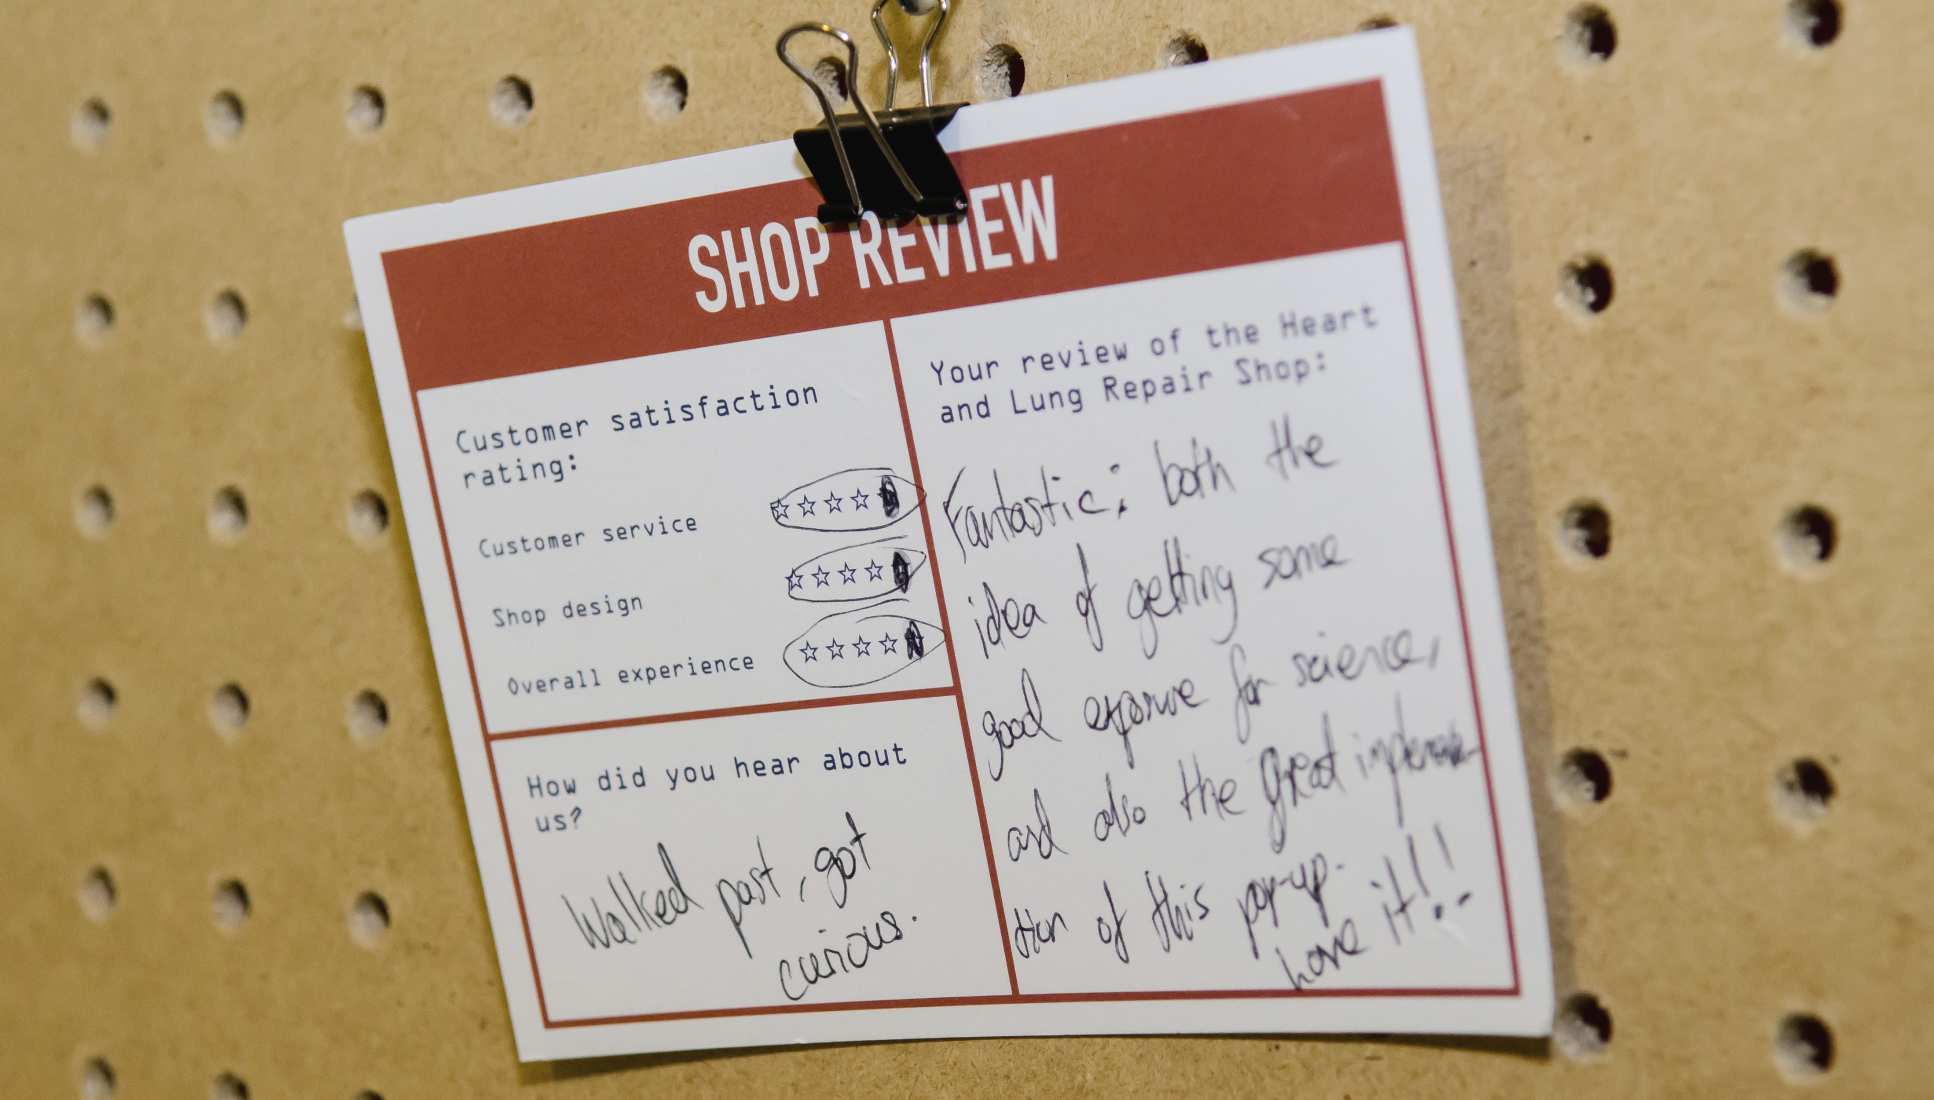 SHOP REVIEW
Customer satisfaction
rating:
Customer service ☆☆☆☆★
Shop design ☆☆☆☆★
Overall experience ☆☆☆☆★
How did you hear about
us?
Walked past, got
curious.
Your review of the Heart
and Lung Repair Shop:
Fantastic; both the
idea of getting some
good exposure for science,
and also the great implementa-
tion of this pop-up.
Love it!!